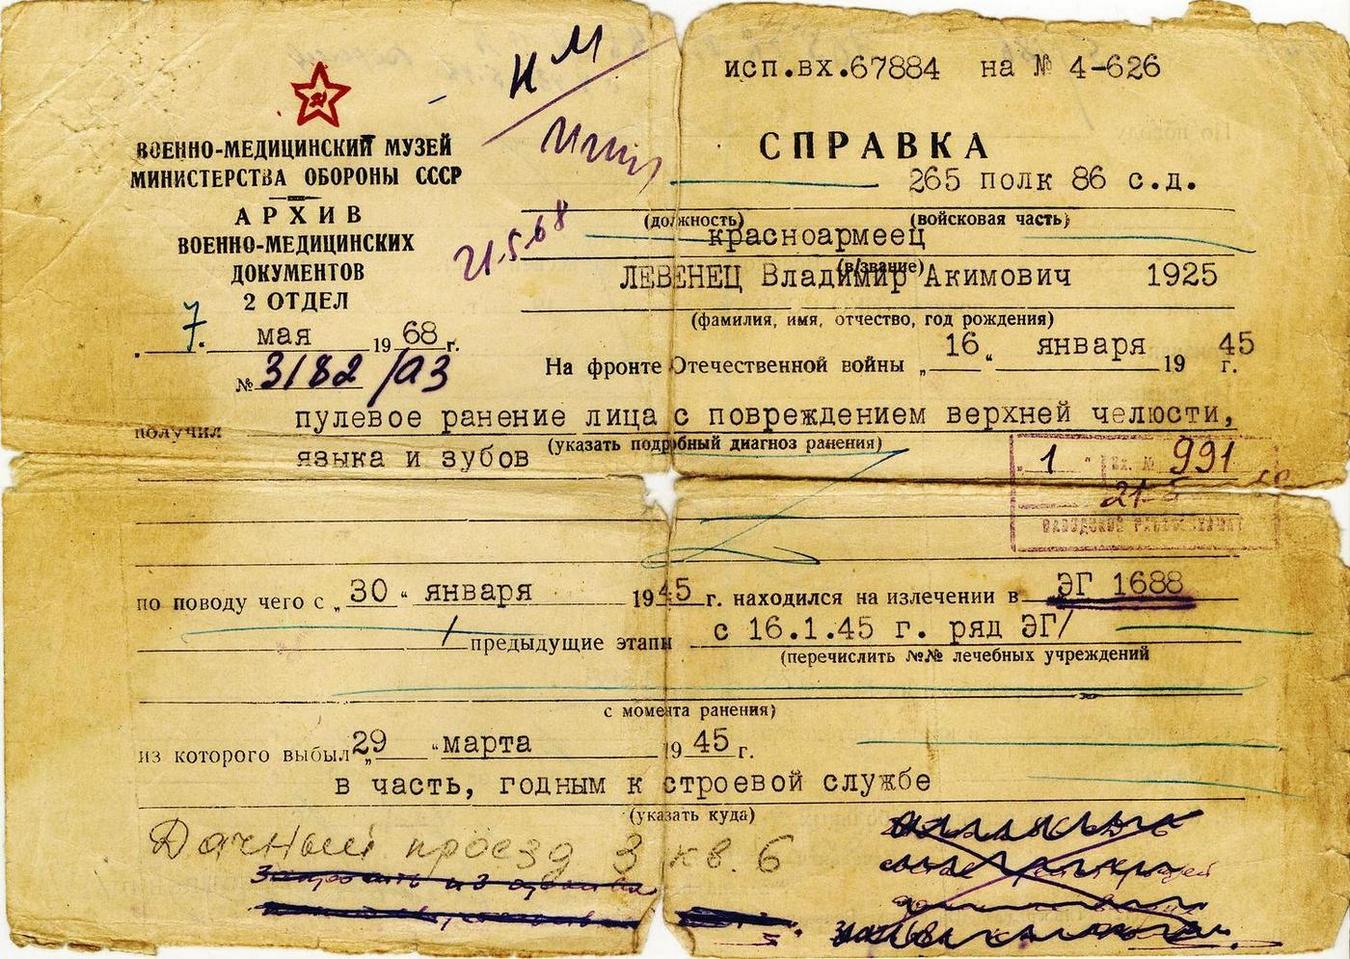 исп.вх.67884 на № 4-626
ВОЕННО-МЕДИЦИНСКИЙ МУЗЕЙ
МИНИСТЕРСТВА ОБОРОНЫ СССР
АРХИВ
ВОЕННО-МЕДИЦИНСКИХ
ДОКУМЕНТОВ
2 ОТДЕЛ
7. мая 1968 г.
№ 3182/а3
21.5.68
СПРАВКА
265 полк 86 с.д.
(должность) (войсковая часть)
красноармеец
(в/звание)
ЛЕВЕНЕЦ Владимир Акимович 1925
(фамилия, имя, отчество, год рождения)
На фронте Отечественной войны „16“ января 1945 г.
получил пулевое ранение лица с повреждением верхней челюсти,
(указать подробный диагноз ранения)
языка и зубов
„1“ Вх. № 991
21
по поводу чего с „30“ января 1945 г. находился на излечении в ЭГ 1688
/предыдущие этапы с 16.1.45 г. ряд ЭГ/
(перечислить №№ лечебных учреждений
с момента ранения)
из которого выбыл „29“ марта 1945 г.
в часть, годным к строевой службе
(указать куда)
Дачный проезд 3 кв. 6